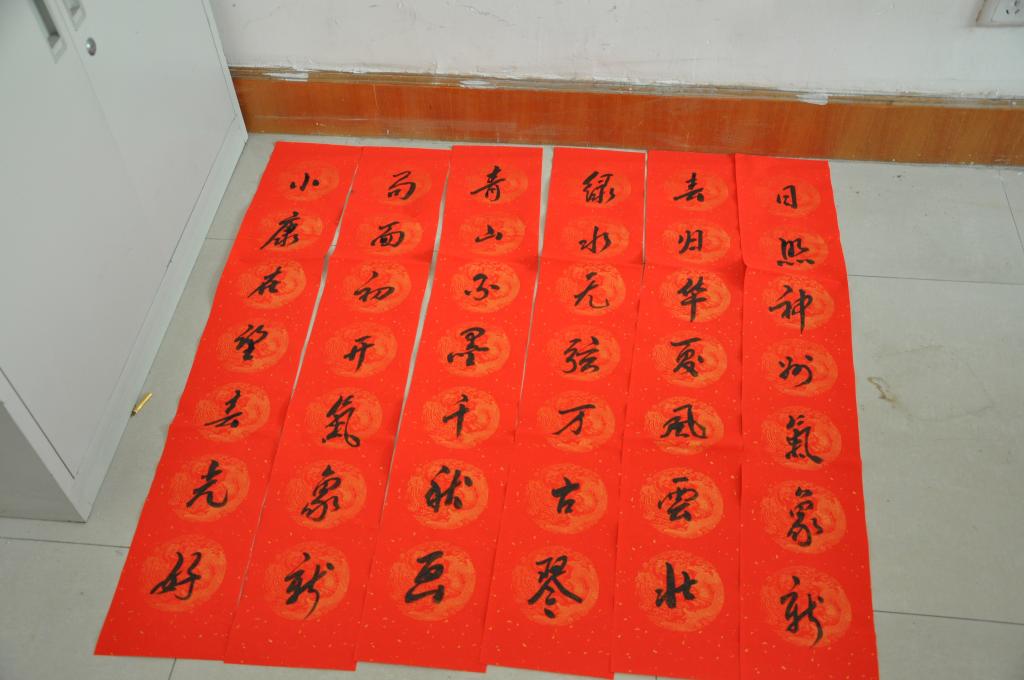 日照神州氣象新
春归华夏風雲壮
绿水无弦万古琴
青山不墨千秋画
局面初开氣象新
小康在望春光好